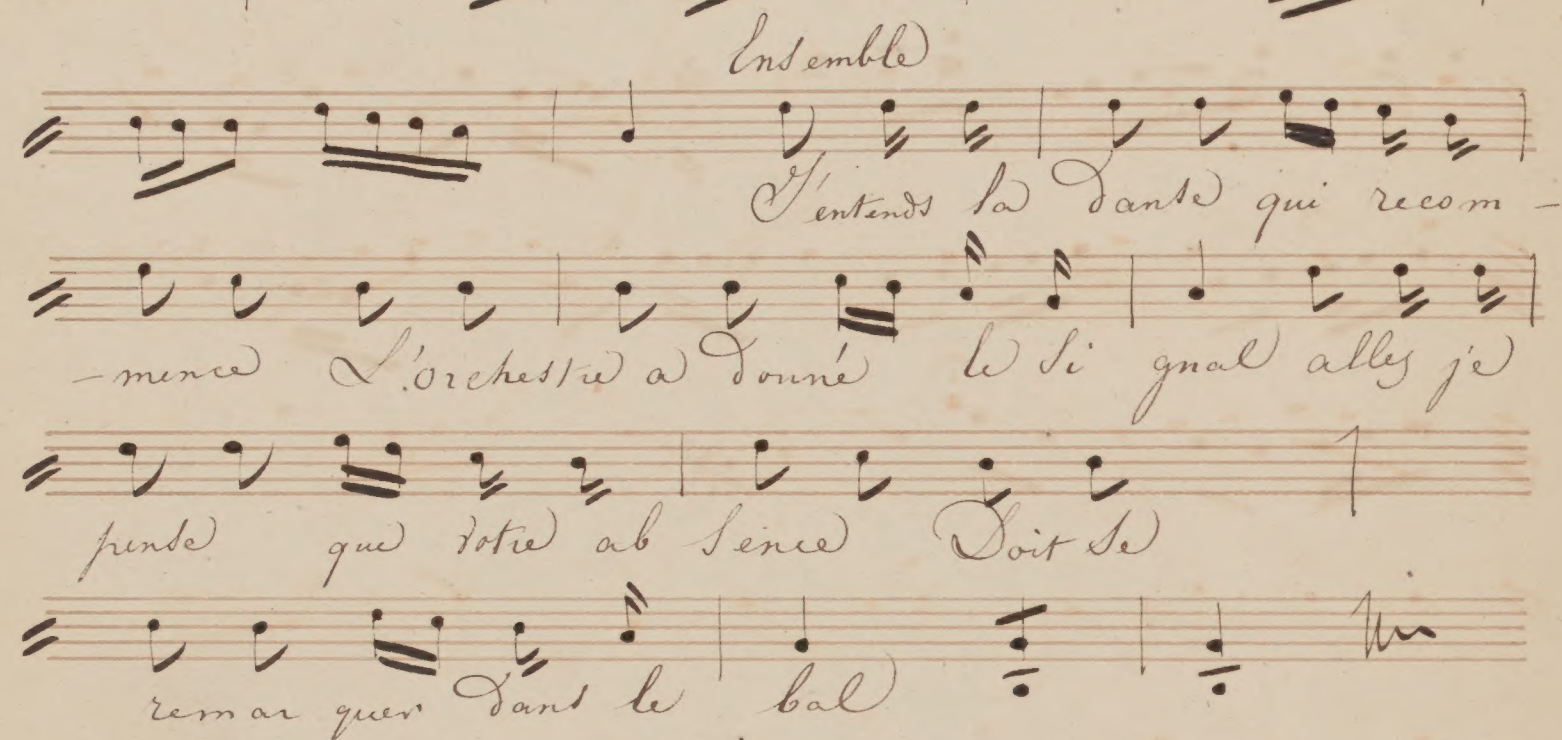 Ensemble
J'entends la danse qui recom -
- mence L'orchestre a donné le si gnal allez je
pense que votre ab sence Doit se
remar quer dans le bal